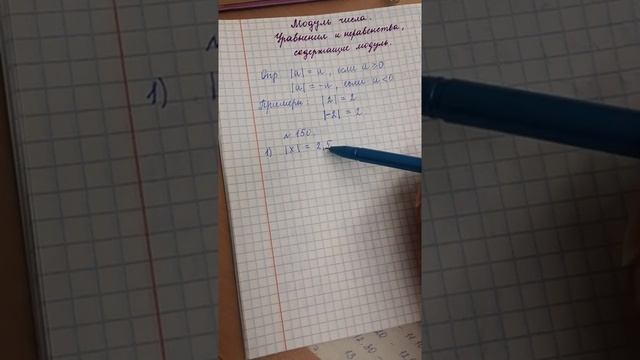 Модуль числа.
Уравнения и неравенства,
содержащие модуль.
Опр |a| = a, если a ≥ 0
|a| = -a, если a < 0
Примеры: |2| = 2
|-2| = 2
№ 150.
1) |x| = 2,5
1)